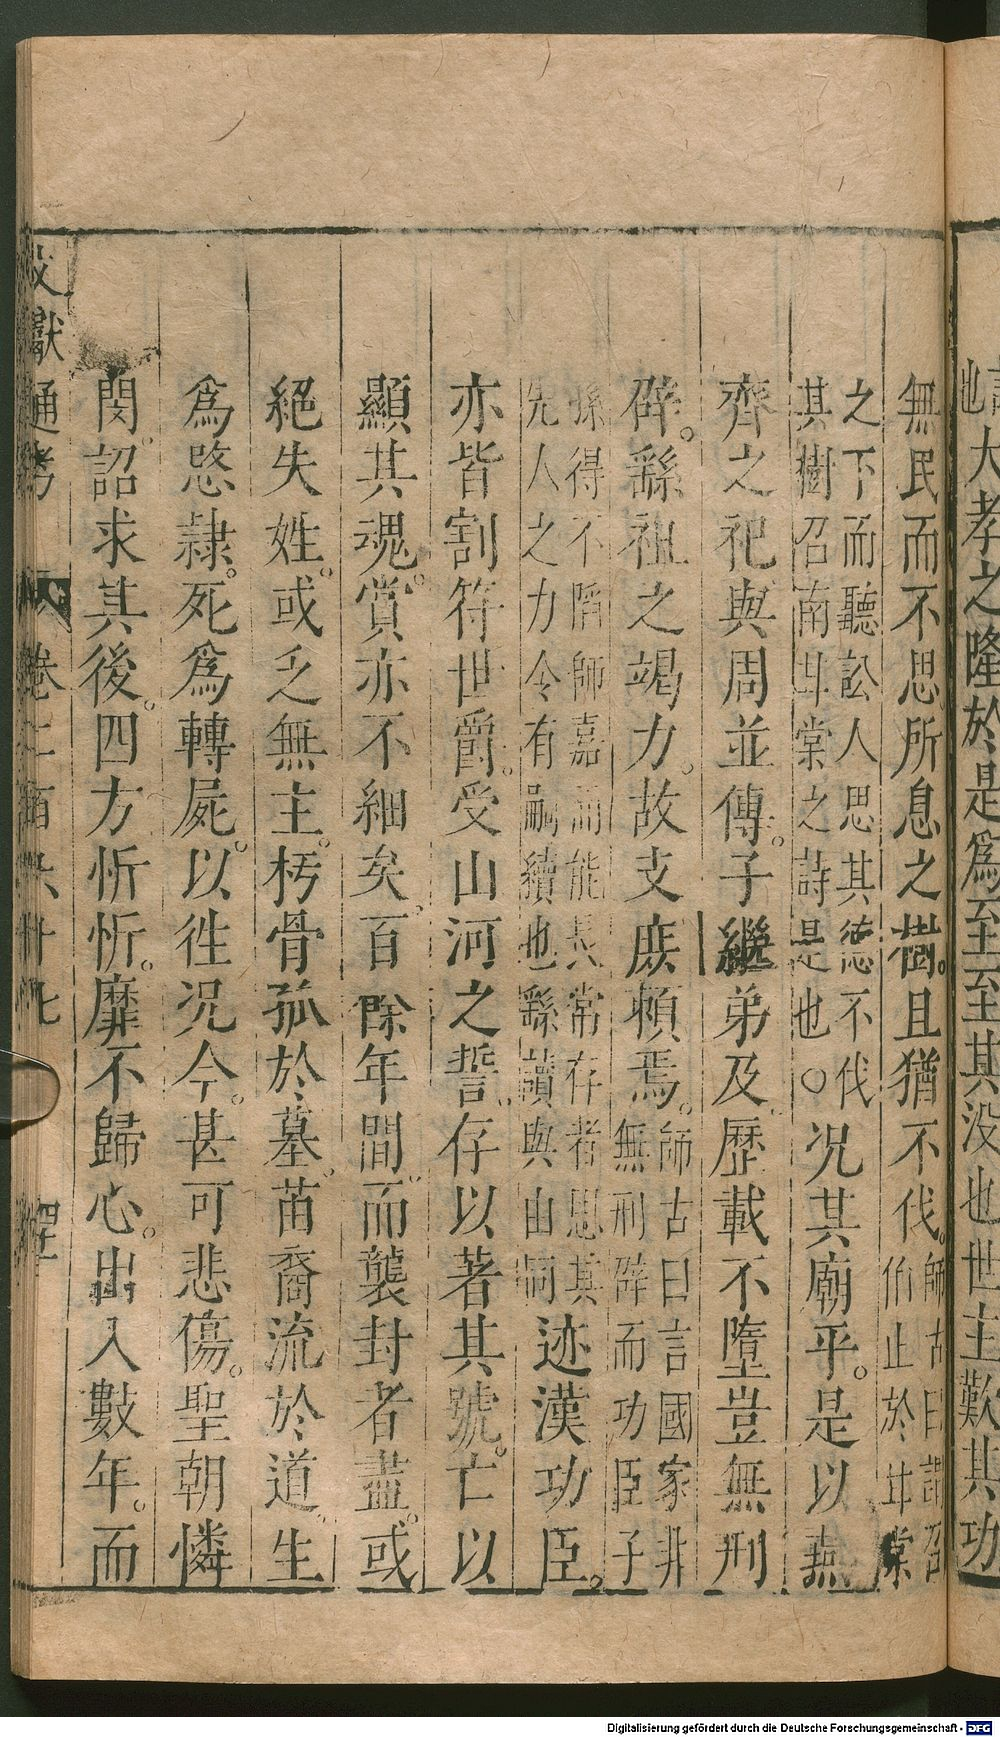 也大孝之隆於是爲至至其没也世主歎其功
無民而不思所息之樹且猶不伐師古曰謂召伯止於甘棠
之下而聽訟人思其德不伐其樹召南甘棠之詩是也〇况其廟乎是以燕
齊之祀與周並傳子繼弟及歷載不墮豈無刑
辟繇祖之竭力故支庶賴焉師古曰言國家非無刑辟而功臣子
孫得不陷師嘉而能長常存者思其先人之力令有嗣續也繇讀與由同迹漢功臣
亦皆割符世爵受山河之誓存以著其號亡以
顯其魂賞亦不細矣百餘年間而襲封者盡或
絕失姓或乏無主朽骨孤於墓苗裔流於道生
爲愍隸死爲轉屍以徃况今甚可悲傷聖朝憐
閔詔求其後四方忻忻靡不歸心出入數年而
文獻通考 卷二百六十七
Digitalisierung gefördert durch die Deutsche Forschungsgemeinschaft - DFG